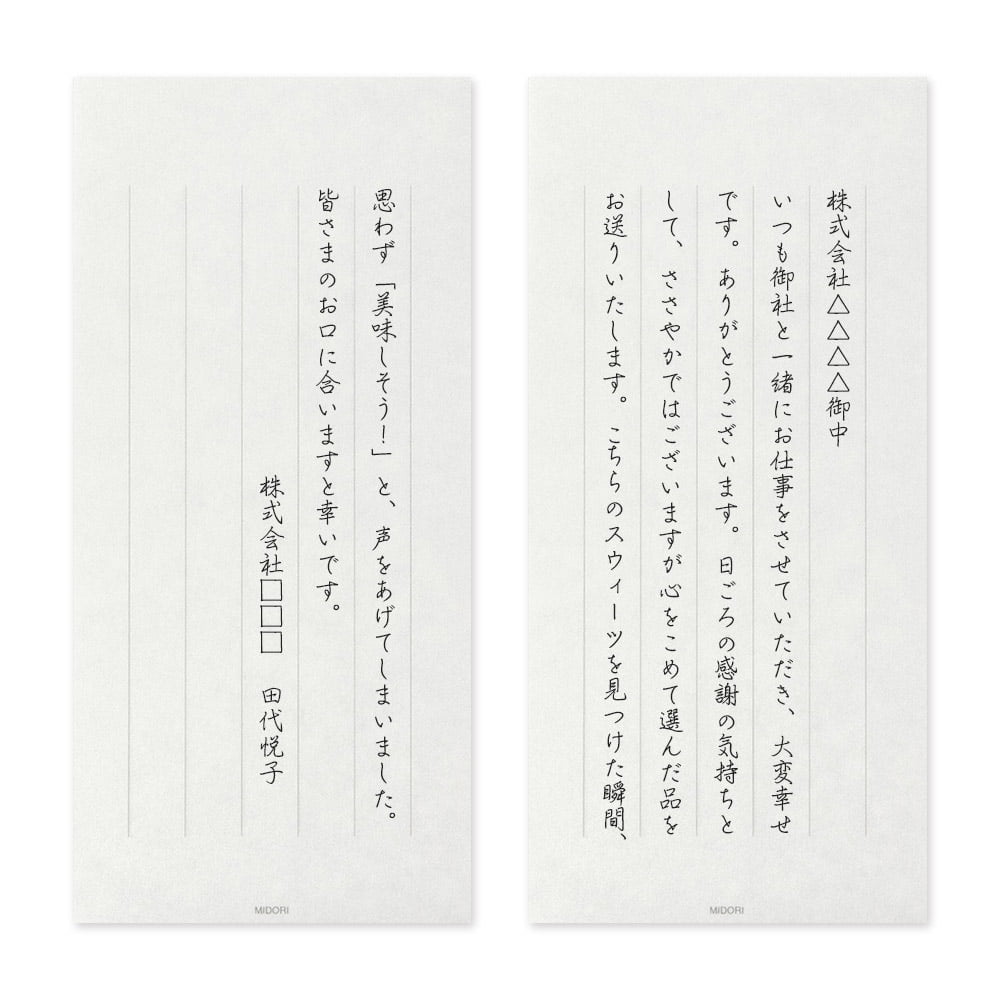 株式会社△△△△御中
いつも御社と一緒にお仕事をさせていただき、大変幸せ
です。ありがとうございます。日ごろの感謝の気持ちと
して、ささやかではございますが心をこめて選んだ品を
お送りいたします。こちらのスウィーツを見つけた瞬間、
思わず「美味しそう！」と、声をあげてしまいました。
皆さまのお口に合いますと幸いです。
株式会社□□□　田代悦子
MIDORI
MIDORI